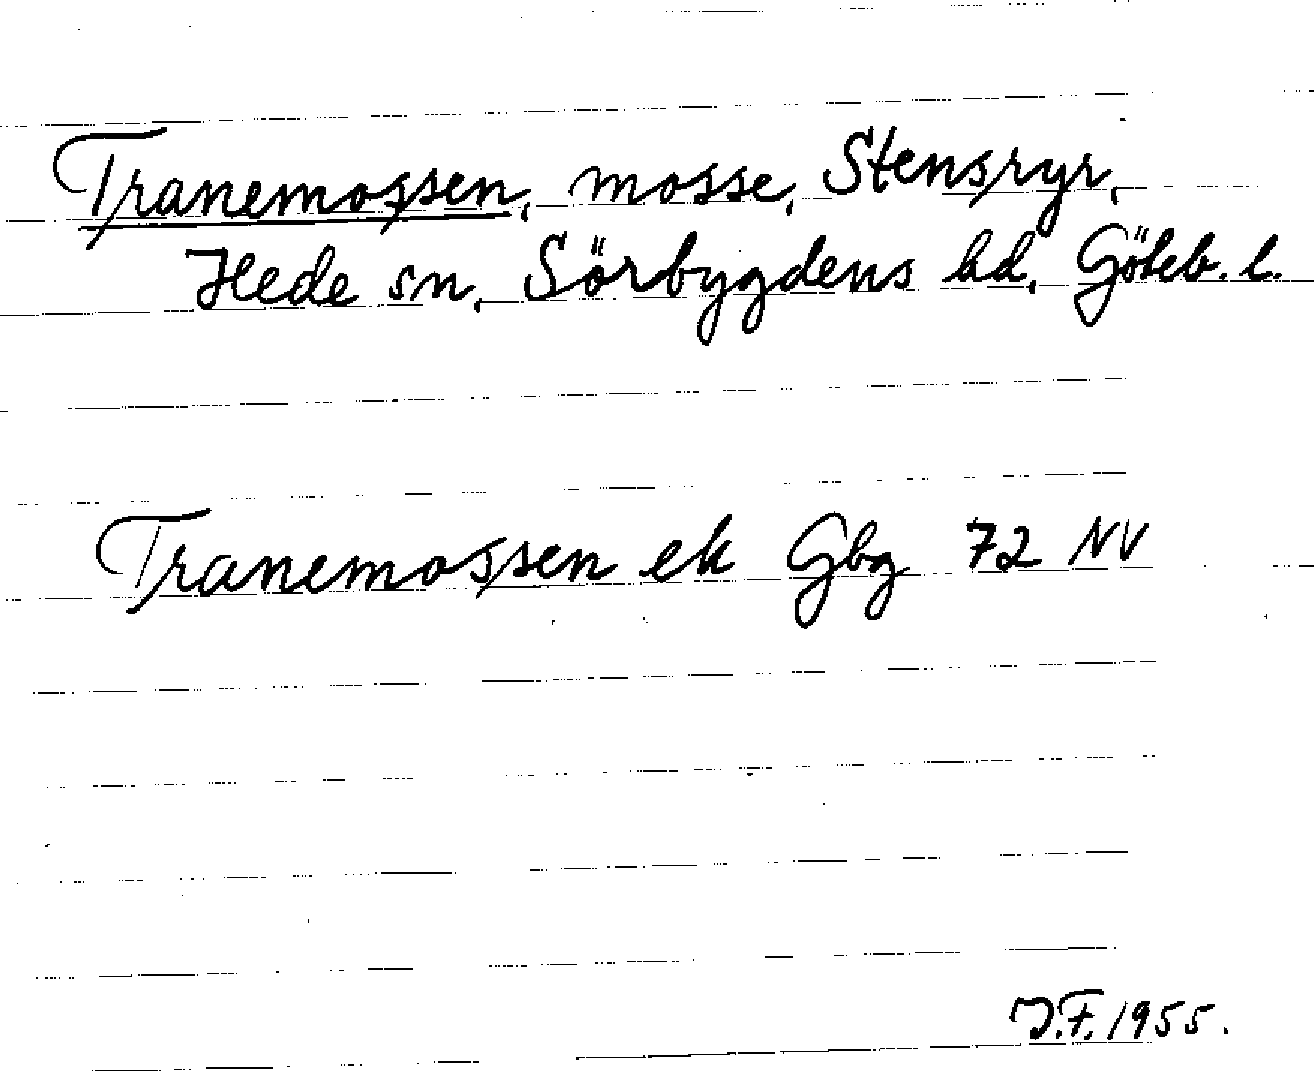 Tranemossen, mosse, Stensryr,
Hede sn, Sörbygdens hd, Göteb. l.
Tranemossen ek Gbg 72 NV
J.F. 1955.